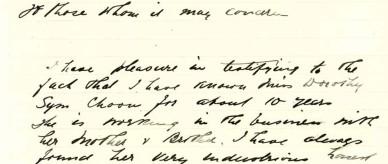 To those whom it may concern
I have pleasure in testifying to the
fact that I have known Miss Dorothy
Sym Choon for about 10 years
She is working in the business with
her Mother & Brother. I have always
found her very industrious honest